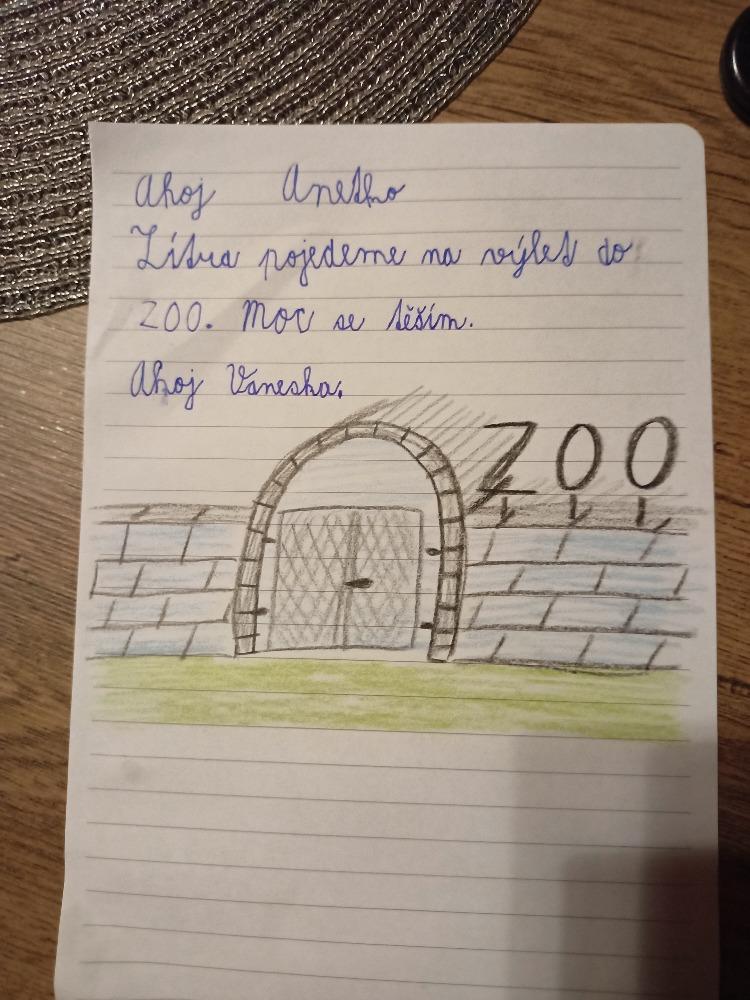 Ahoj Anetko
Zítra pojedeme na výlet do
ZOO. Moc se těším.
Ahoj Vaneska.
ZOO